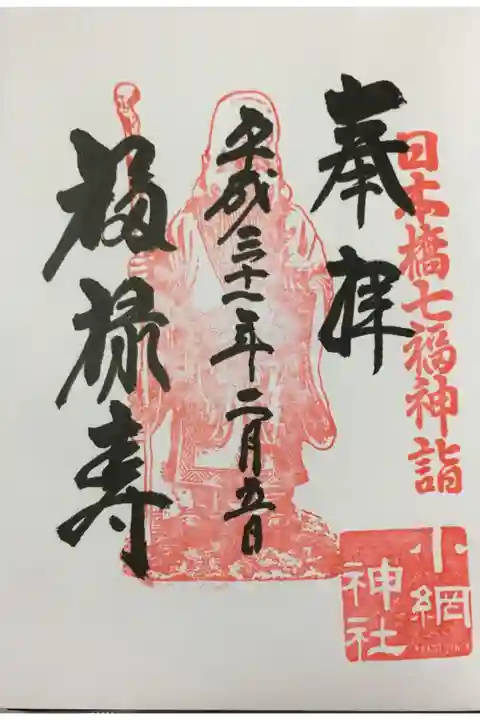 日本橋七福神詣
奉拝
平成三十一年二月五日
福禄寿
小網
神社